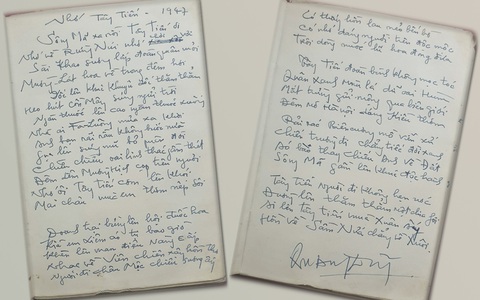 Nhớ Tây Tiến - 1947
Sông Mã xa rồi Tây Tiến ơi
Nhớ về Rừng Núi nhớ chơi vơi
Sài Khao sương lấp đoàn quân mỏi
Mường Lát hoa về trong đêm hơi
Dốc lên khúc khuỷu dốc thăm thẳm
Heo hút cồn mây súng ngửi trời
Ngàn thước lên cao ngàn thước xuống
Nhà ai Pha Luông mưa xa khơi
Anh bạn dãi dầu không bước nữa
Gục lên súng mũ bỏ quên đời
Chiều chiều oai linh thác gầm thét
Đêm đêm Mường Hịch cọp trêu người
Nhớ ôi Tây Tiến cơm lên khói
Mai Châu mùa em thơm nếp xôi
Doanh trại bừng lên hội đuốc hoa
Kìa em xiêm áo tự bao giờ
Khèn lên man điệu nàng e ấp
Nhạc về Viên Chăn xây hồn thơ
Người đi Châu Mộc chiều sương ấy
Có thấy hồn lau nẻo bến bờ
Có nhớ dáng người trên độc mộc
Trôi dòng nước lũ hoa đong đưa
Tây Tiến đoàn binh không mọc tóc
Quân xanh màu lá dữ oai hùm
Mắt trừng gửi mộng qua biên giới
Đêm mơ Hà Nội dáng kiều thơm
Rải rác Biên cương mồ viễn xứ
Chiến trường đi chẳng tiếc đời xanh
Áo bào thay chiếu anh về Đất
Sông Mã gầm lên khúc độc hành
Tây Tiến người đi không hẹn ước
Đường lên thăm thẳm một chia phôi
Ai lên Tây Tiến mùa Xuân ấy
Hồn về Sầm Nứa chẳng về xuôi